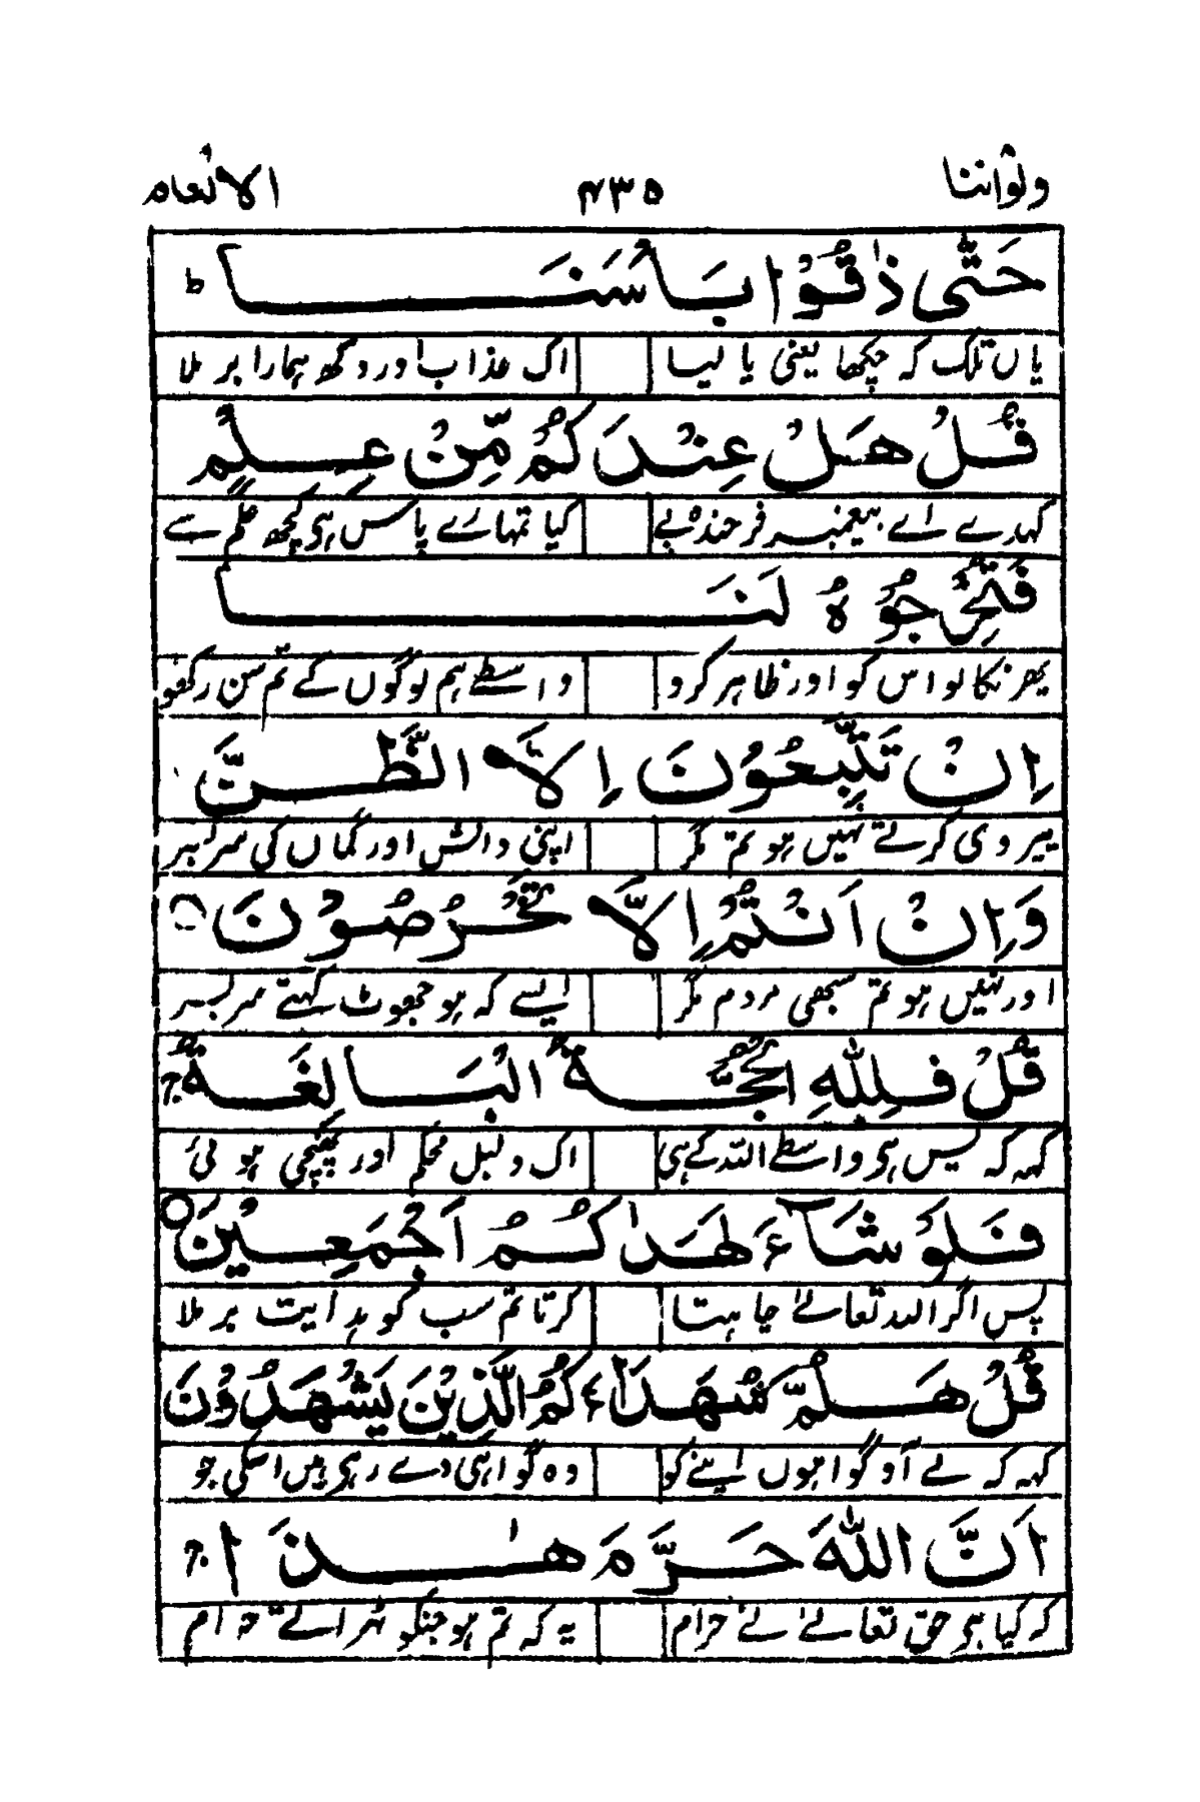 ولواننا ۴۳۵ الانعام
حَتّٰى ذَاقُوْا بَاْسَنَا ط
یاں تلک کہ چکھا یعنی پا لیا اک عذاب اور دکھ ہمارا بر ملا
قُلْ هَلْ عِنْدَكُمْ مِّنْ عِلْمٍ
کہدے اے پیغمبر فرخندہ پے کیا تمہارے پاس ہی کچھ علم سے
فَتُخْرِجُوْهُ لَنَا
پھر نکالو اس کو اور ظاہر کرو واسطے ہم لوگوں کے تم سن رکھو
اِنْ تَتَّبِعُوْنَ اِلَّا الظَّنَّ
پیروی کرتے نہیں ہو تم مگر اپنی دانش اور گماں کی سر بسر
وَاِنْ اَنْتُمْ اِلَّا تَخْرُصُوْنَ ○
اور نہیں ہو تم سبھی مردم مگر ایسے کہ ہو جھوٹ کہتے سر بسر
قُلْ فَلِلّٰهِ الْحُجَّةُ الْبَالِغَةُ ج
کہہ کہ پس ہی واسطے اللہ کے ہی اک دلیل محکم اور پہنچی ہوئی
فَلَوْ شَآءَ لَهَدٰىكُمْ اَجْمَعِيْنَ ○
پس اگر اللہ تعالےٰ چاہتا کرتا تم سب کو ہدایت بر ملا
قُلْ هَلُمَّ شُهَدَآءَكُمُ الَّذِيْنَ يَشْهَدُوْنَ
کہہ کہ لے آؤ گواہوں اپنے کو وہ گواہی دے رہی ہیں اسکی جو
اَنَّ اللّٰهَ حَرَّمَ هٰذَا ج
کہ کیا ہر حق تعالےٰ نے حرام یہ کہ تم ہو جنکو ٹھراتے حرام